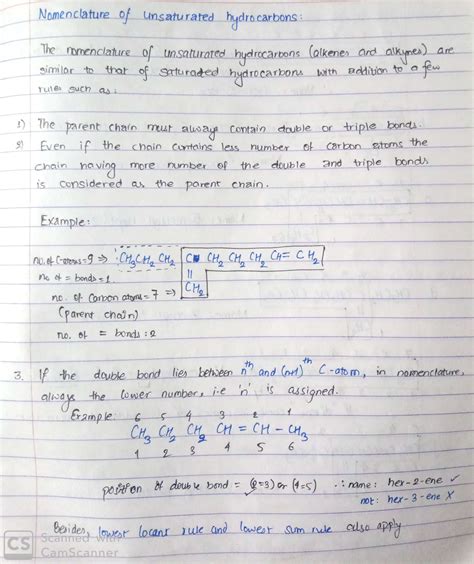 Nomenclature of unsaturated hydrocarbons:
The nomenclature of unsaturated hydrocarbons (alkenes and alkynes) are
similar to that of saturated hydrocarbons with addition to a few
rules such as:
1) The parent chain must always contain double or triple bonds.
2) Even if the chain contains less number of carbon atoms the
chain having more number of the double and triple bonds
is considered as the parent chain.
Example:
no. of C-atoms = 9 => CH3 CH2 CH2 C CH2 CH2 CH2 CH = CH2
no of = bonds = 1 ||
no. of Carbon atoms = 7 => CH2
(parent chain)
no. of = bonds : 2
3. If the double bond lies between nth and (n+1)th C-atom, in nomenclature,
always the lower number, i.e 'n' is assigned.
Example: 6 5 4 3 2 1
CH3 CH2 CH2 CH = CH - CH3
1 2 3 4 5 6
position of double bond = (2=3) or (4=5) ∴ name: hex-2-ene ✓
not: hex-3-ene X
Besides, lowest locant rule and lowest sum rule also apply
CS Scanned with
CamScanner